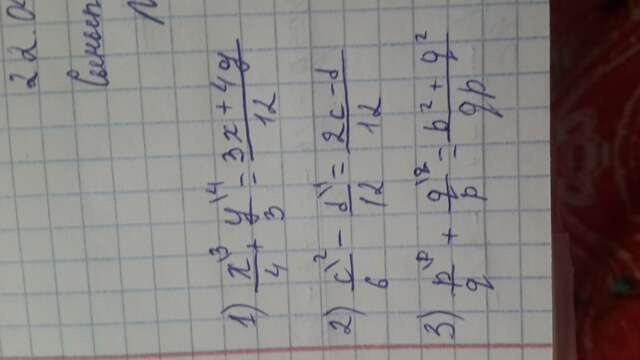 22.0
1) x\3/4 + y\4/3 = 3x+4y/12
2) c\2/6 - d\1/12 = 2c-d/12
3) p\p/q + q\q/p = p²+q²/qp